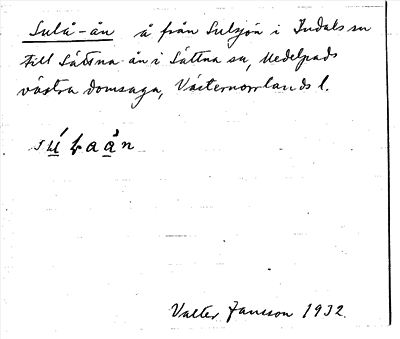 Sulå-ån å från Sulsjön i Indals sn
till Sättna-ån i Sättna sn, Medelpads
västra domsaga, Västernorrlands l.
Valter Jansson 1932.